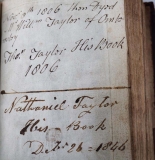 9th 1806 then Dyed
Willm Taylor of Onto
Thos Taylor His Book
1806
Nathaniel Taylor
His Book
Decbr 26 - 1846